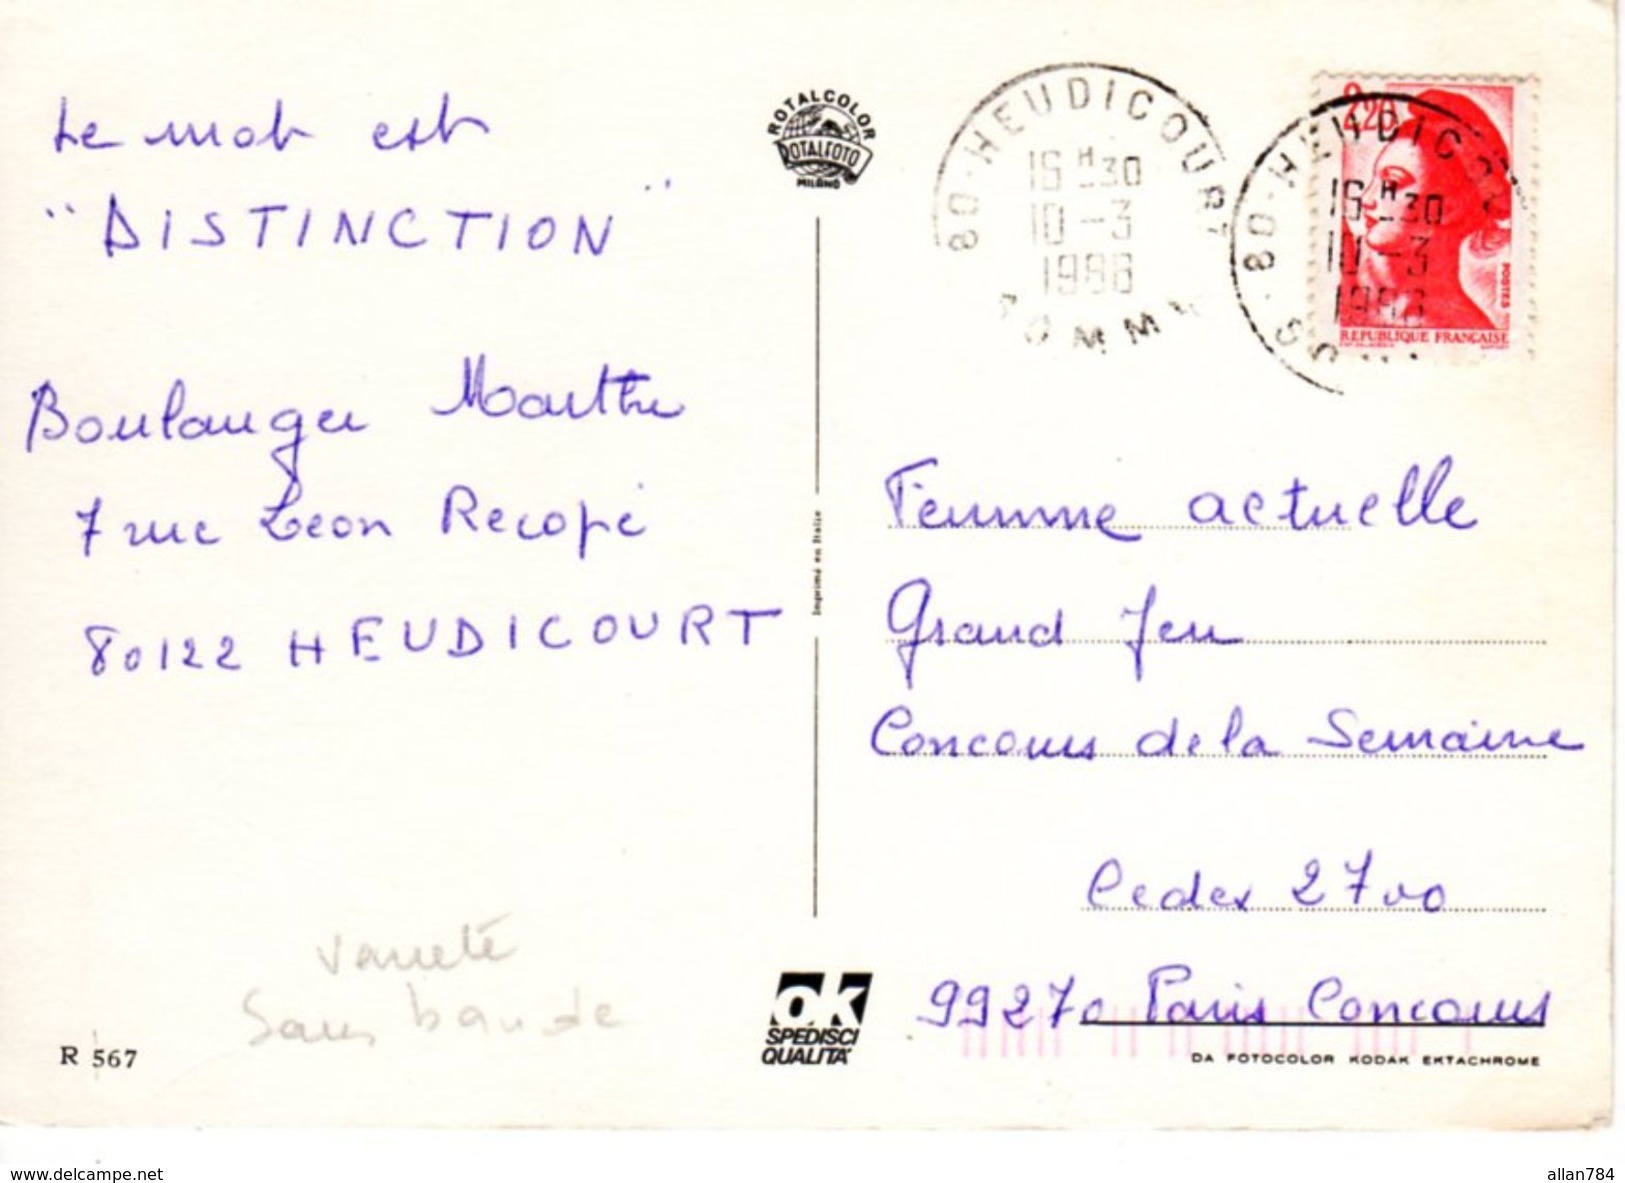 Le mot est
"DISTINCTION"
Boulanger Marthe
7 rue Leon Recopé
80122 HEUDICOURT
Varieté
Sans bande
R 567
ROTALCOLOR
ROTALFOTO
MILANO
Imprimé en Italie
OK
SPEDISCI
QUALITA'
80-HEUDICOURT
16H30
10-3
1988
SOMME
80-HEUDICO
16H30
10-3
1988
SO
2,20
POSTES
REPUBLIQUE FRANÇAISE
Femme actuelle
Grand Jeu
Concours de la Semaine
Cedex 2700
99270 Paris Concours
DA FOTOCOLOR KODAK EKTACHROME
www.delcampe.net
allan784